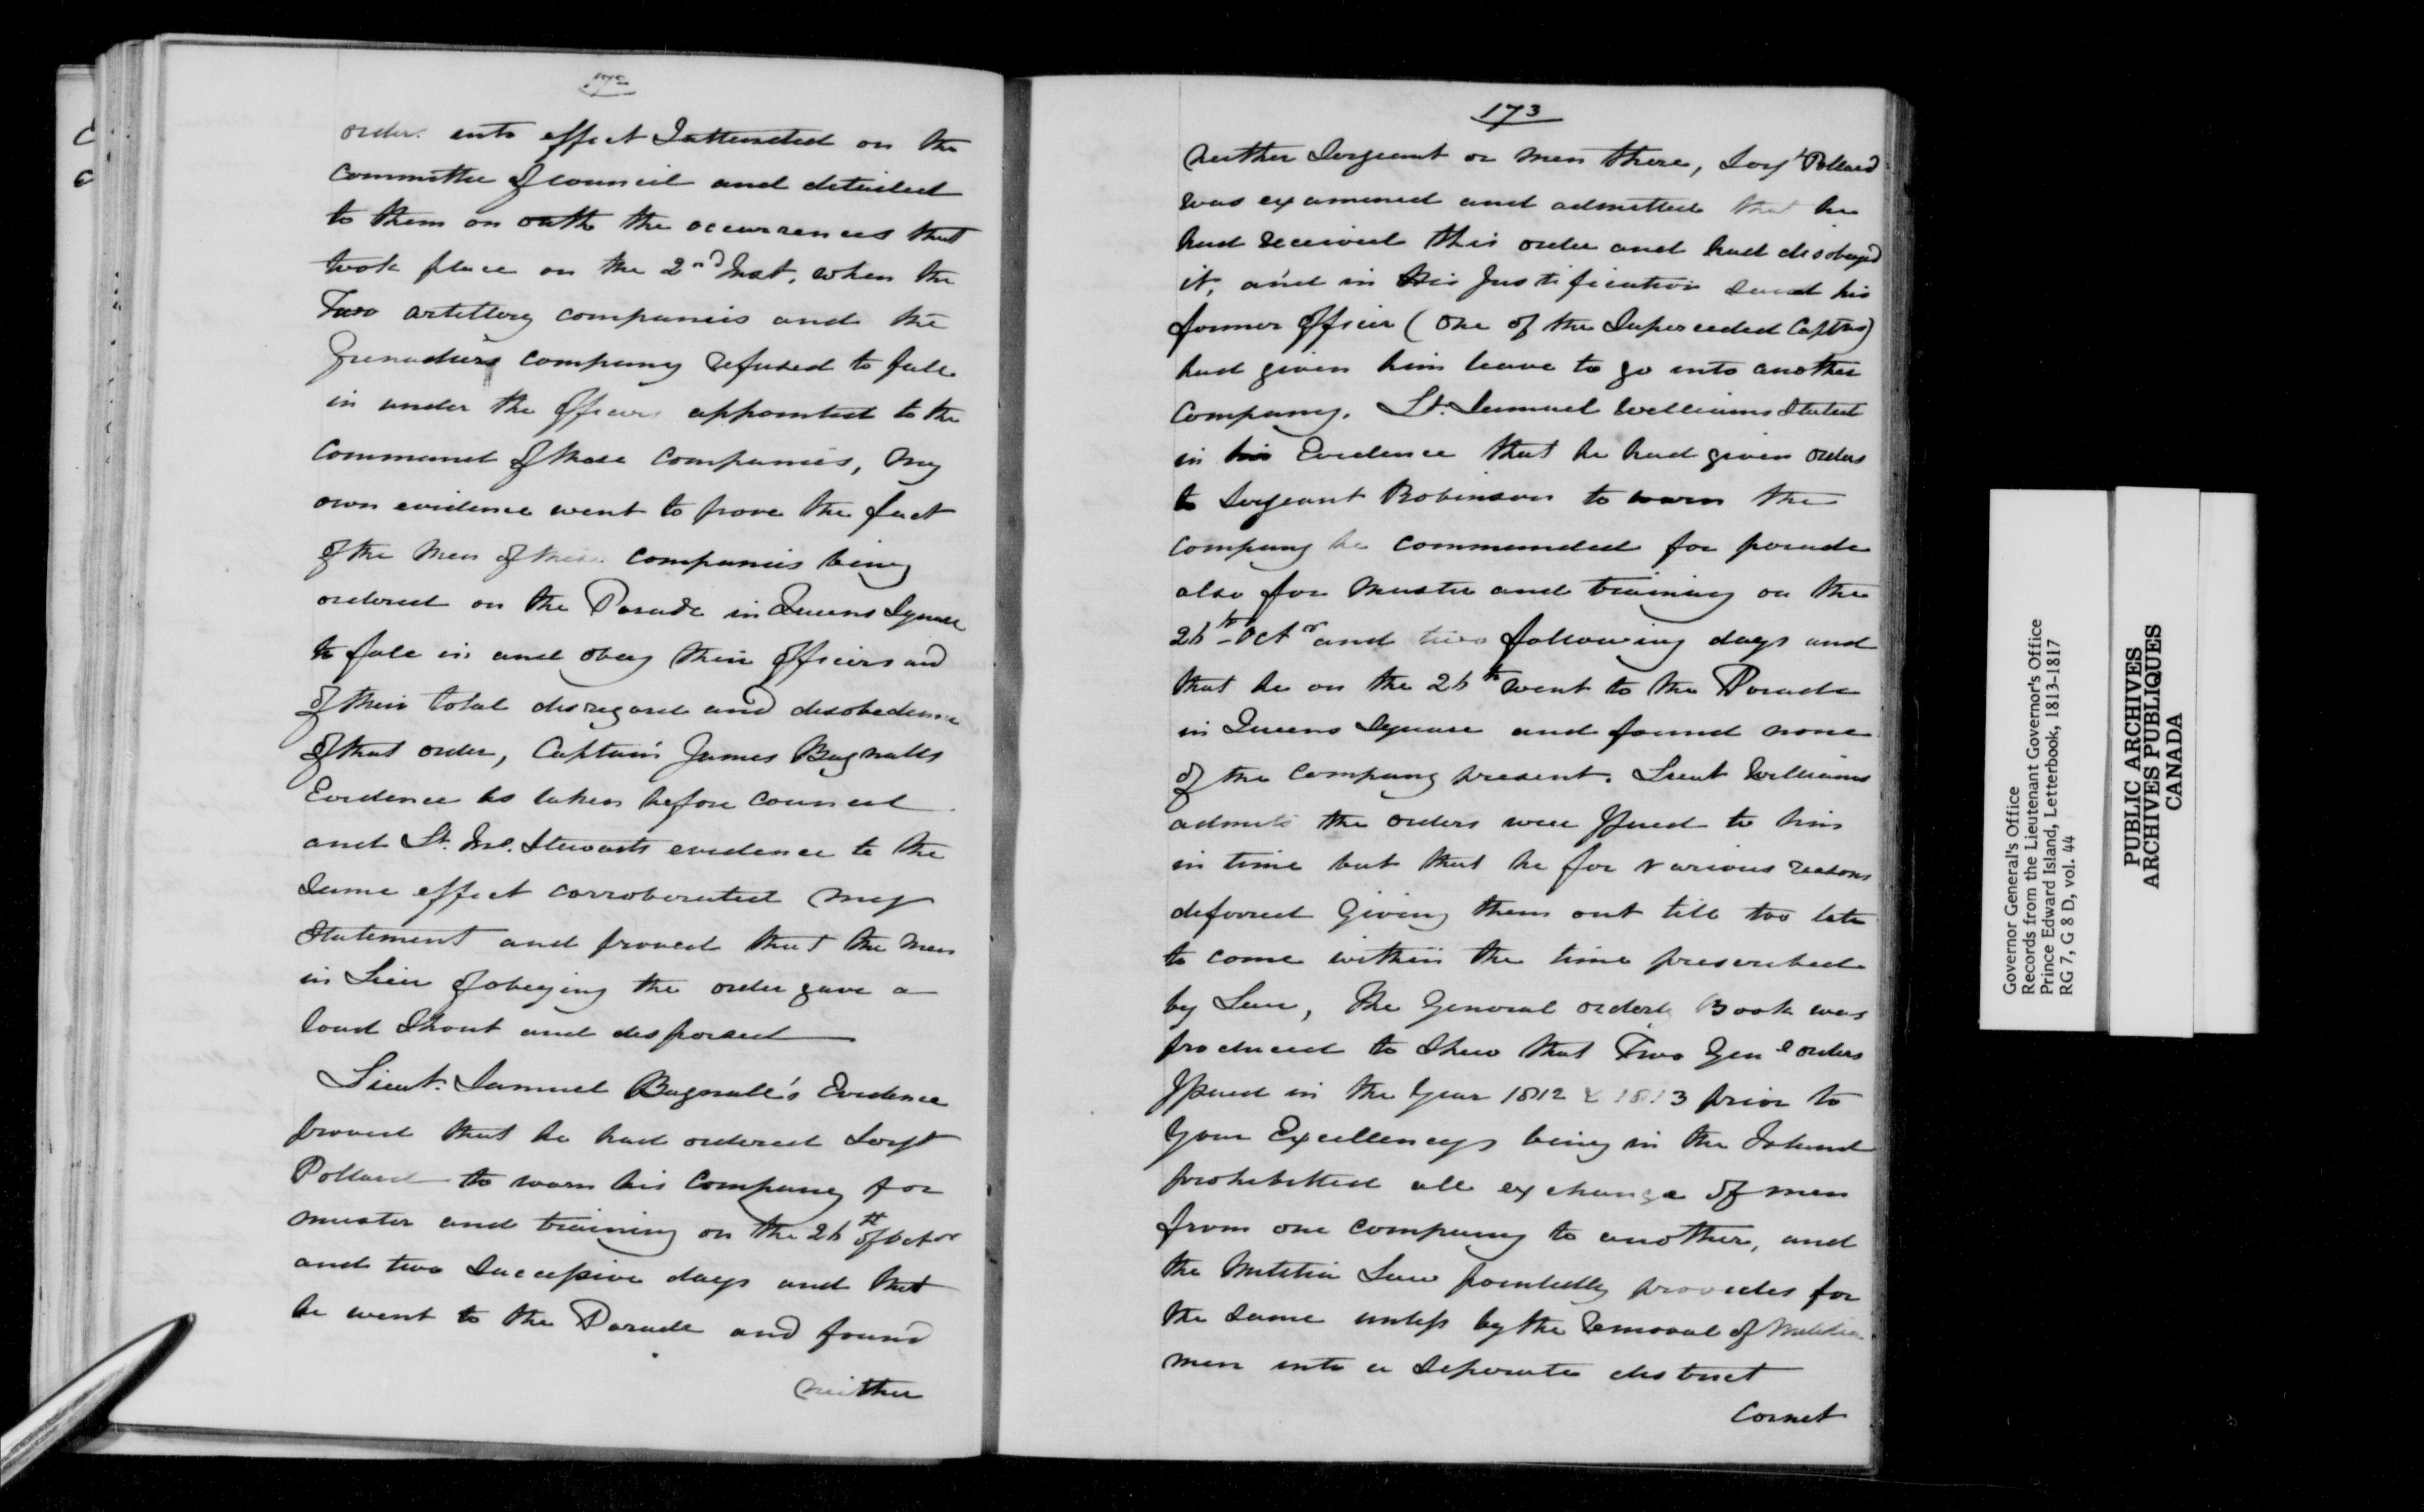 172
orders into effect I attended on the
Committee of Council and detailed
to them on oath the occurrences that
took place on the 2nd Inst. when the
Two artillery companies and the
Grenadiers company refused to fall
in under the officers appointed to the
Command of those companies, My
own evidence went to prove the fact
of the Men of these companies being
ordered on the Parade in Queens Square
to fall in and obey their officers and
of their total disregard and disobedience
of that order, Captain James Bagnalls
Evidence as taken before Council
and Lt. Jno. Stewarts evidence to the
Same effect corroborated my
Statement and proved that the Men
in Lieu of obeying the order gave a
loud Shout and dispersed
Lieut. Samuel Bagnall's Evidence
proved that he had ordered Sergt
Pollard to warn his Company for
muster and training on the 26th of Octor
and two Successive days and that
he went to the Parade and found
Neither
173
Neither Sergeant or men there, Sergt Pollard
was examined and admitted that he
had received this order and had disobeyed
it, and in His Justification said his
former officer (One of the Superceeded Captns)
had given him leave to go into another
Company. Lt. Samuel Williams Stated
in his Evidence that he had given orders
to Sergeant Robinson to warn the
Company he commanded for parade
also for Muster and training on the
26th Octr and two following days and
that he on the 26th went to the Parade
in Queens Square and found none
of the Company present. Lieut Williams
admits the orders were Issued to him
in time but that he for various reasons
deferred Giving them out till too late
to come within the time prescribed
by Law, The General orderly Book was
produced to Shew that Two Genl orders
Issued in the Year 1812 & 1813 prior to
Your Excellencys being in the Island
prohibitted all exchange of men
from one Company to another, and
the Militia Law pointedly provides for
the Same unless by the removal of Militia
men into a Seperate district
Cornet
Governor General's Office
Records from the Lieutenant Governor's Office
Prince Edward Island, Letterbook, 1813-1817
RG 7, G 8 D, vol. 44
PUBLIC ARCHIVES
ARCHIVES PUBLIQUES
CANADA